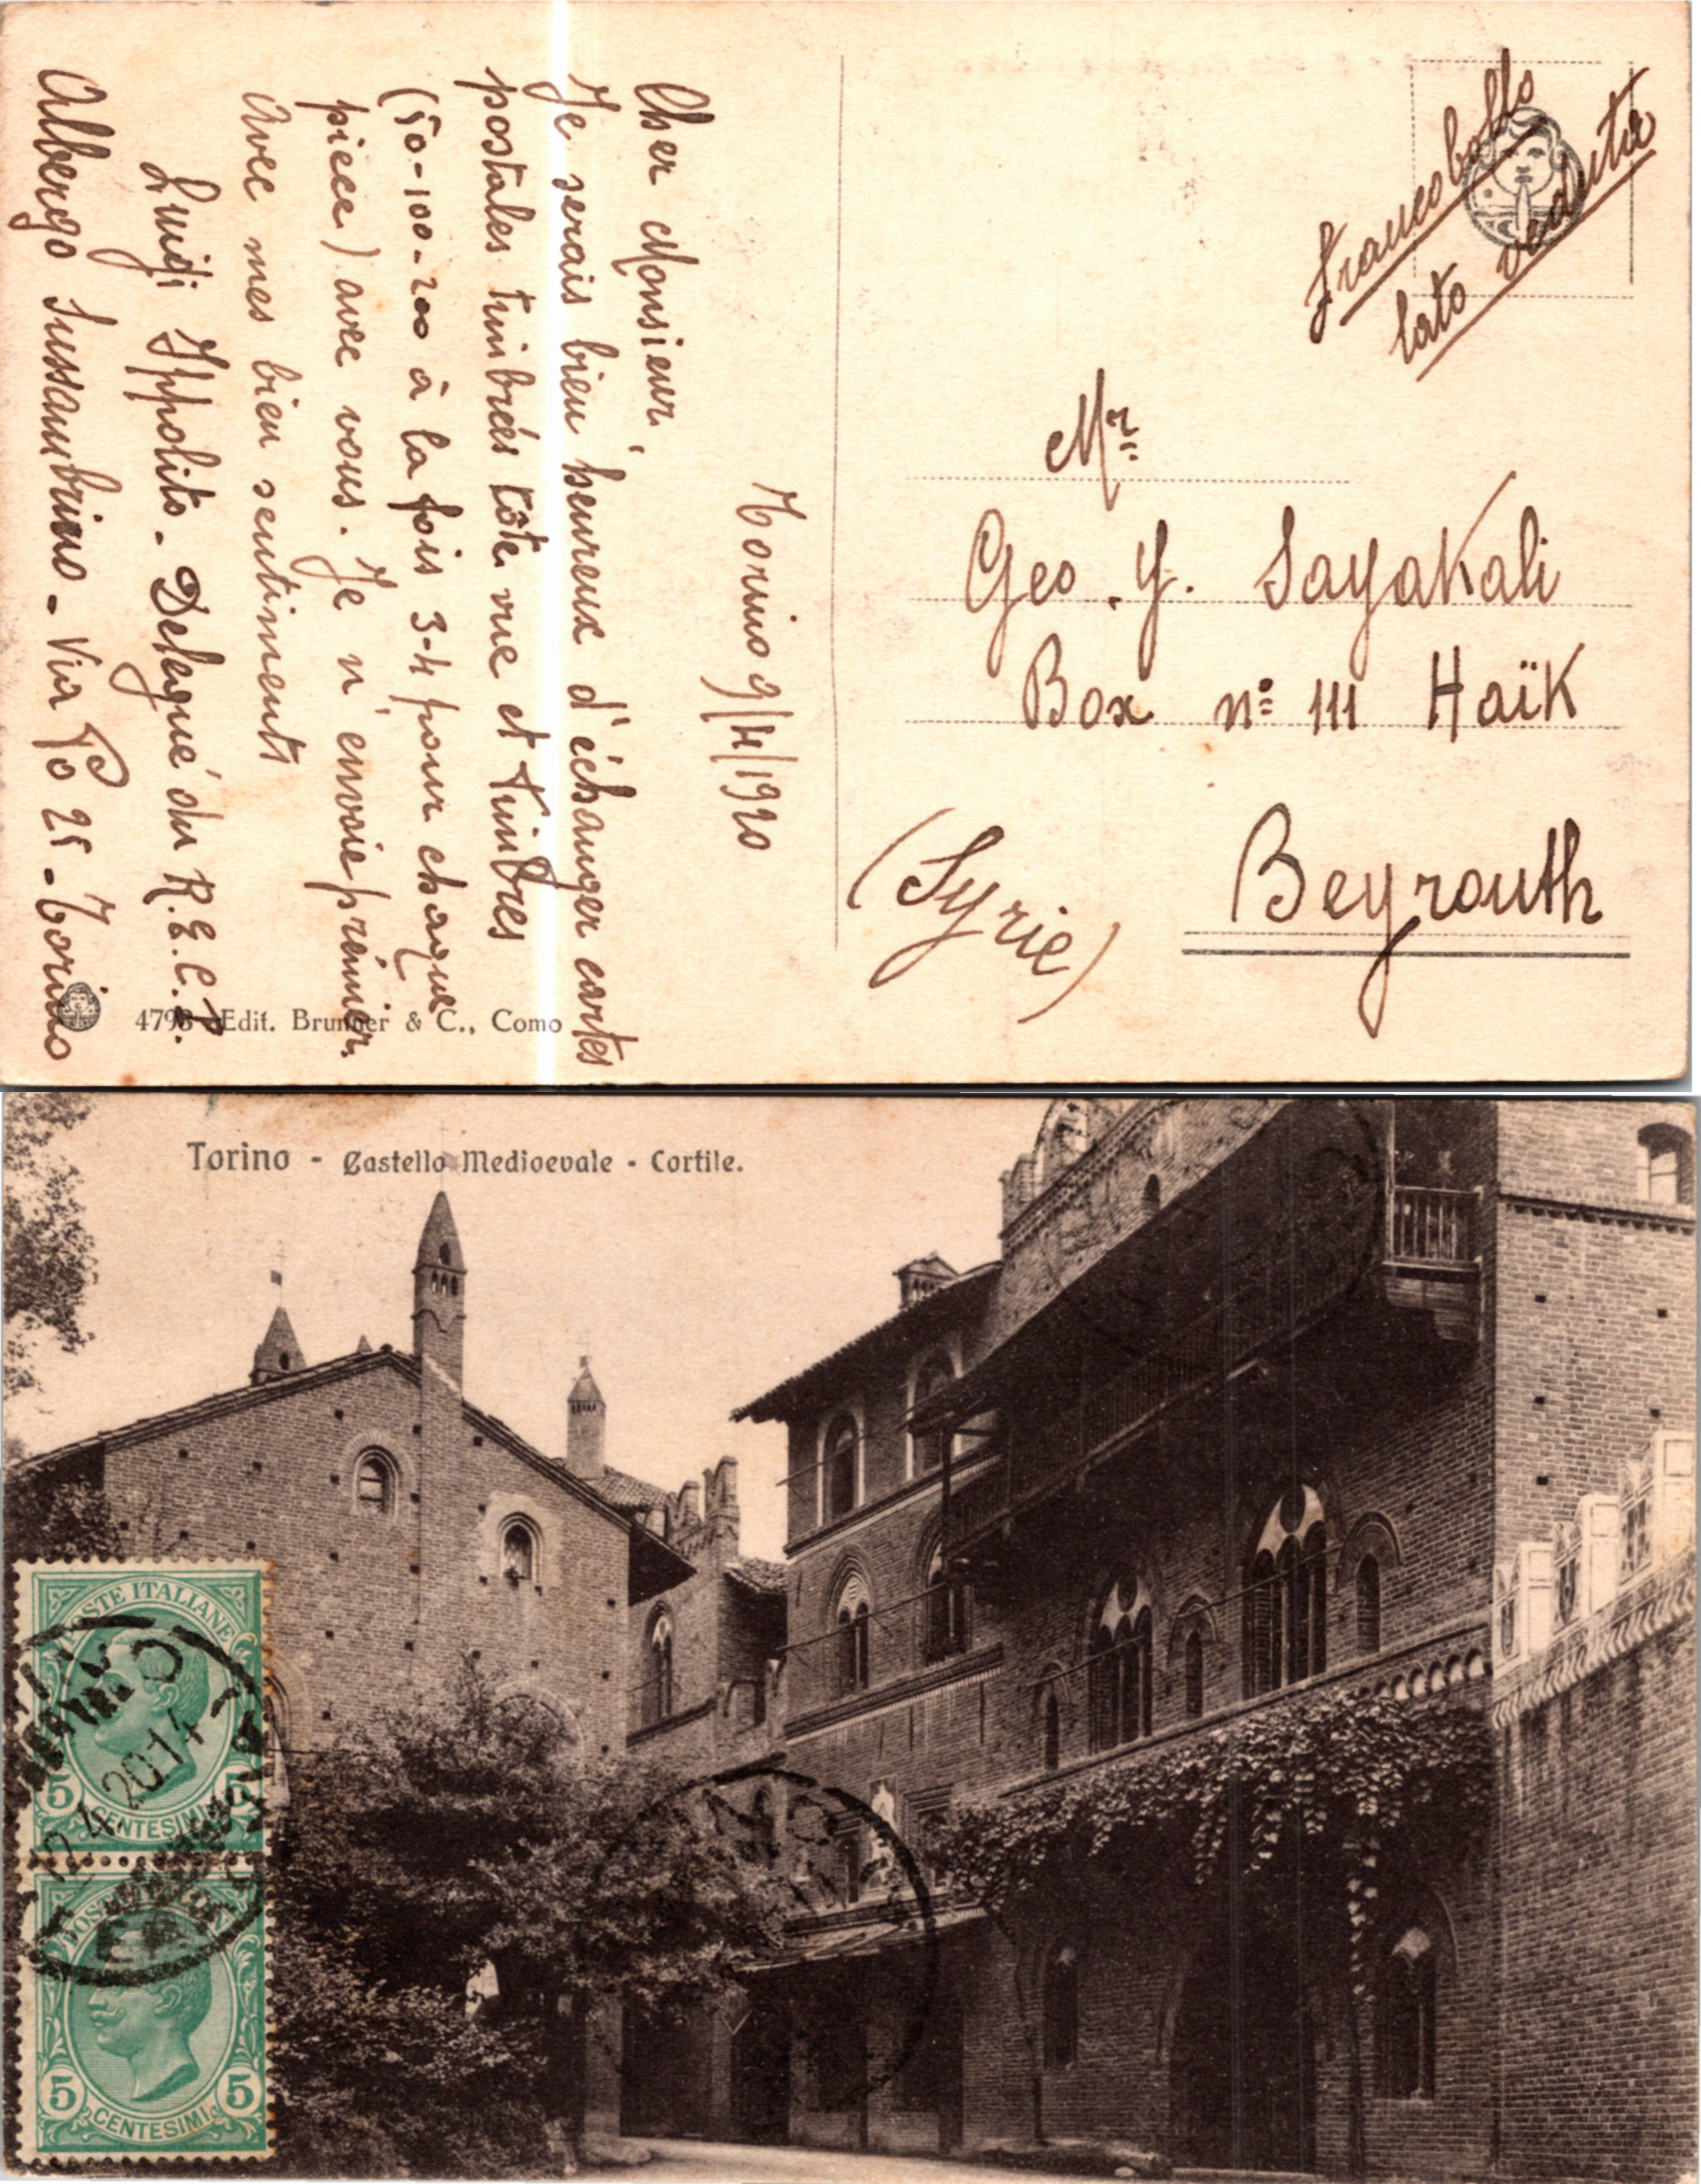 Torino 9/4/1920
Cher Monsieur,
Je serais bien heureux d'échanger cartes
postales timbrées côté vue et timbres
(50-100-200 à la fois 3-4 pour chaque
pièce) avec vous. Je n'envoie prémier.
Avec mes bien sentiments
Luigi Ippolito - Delegué du R.E.C.P.
Albergo Sussambrino - Via Po 25 - Torino
francobollo
lato veduta
Mr.
Geo. Y. Sayakali
Box nº 111 Haïk
Beyrouth
(Syrie)
4798 Edit. Brunner & C., Como
Torino - Castello Medioevale - Cortile.
POSTE ITALIANE
5 5
CENTESIMI
4.20 14
5 5
CENTESIMI